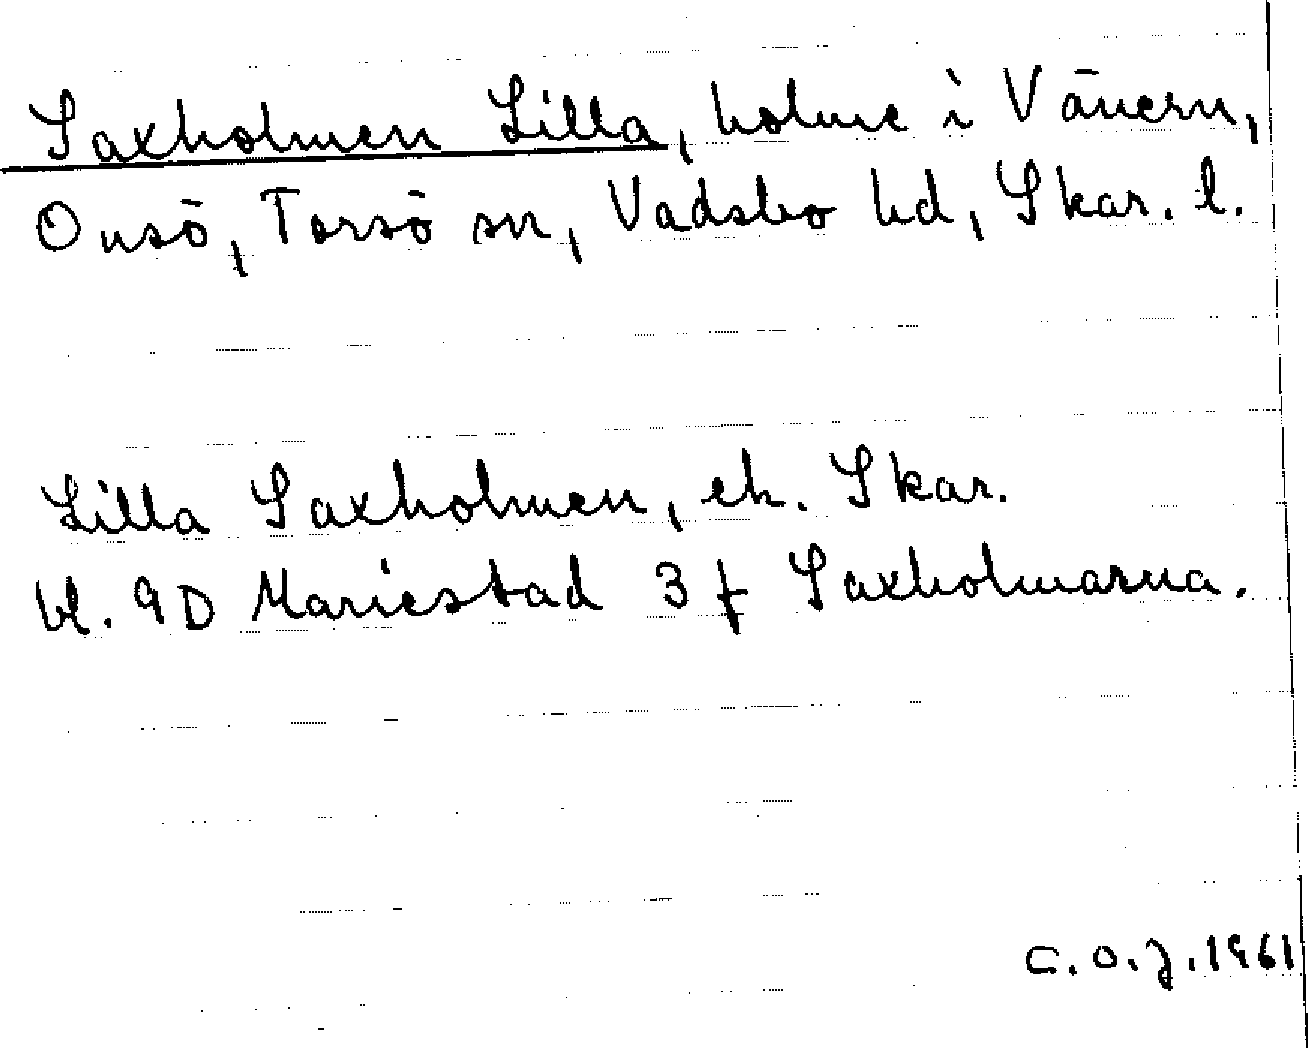 Saxholmen Lilla, holme i Vänern,
Onsö, Torsö sn, Vadsbo hd, Skar. l.
Lilla Saxholmen, ek. Skar.
bl. 9D Mariestad 3 f Saxholmarna.
C.O.J. 1961